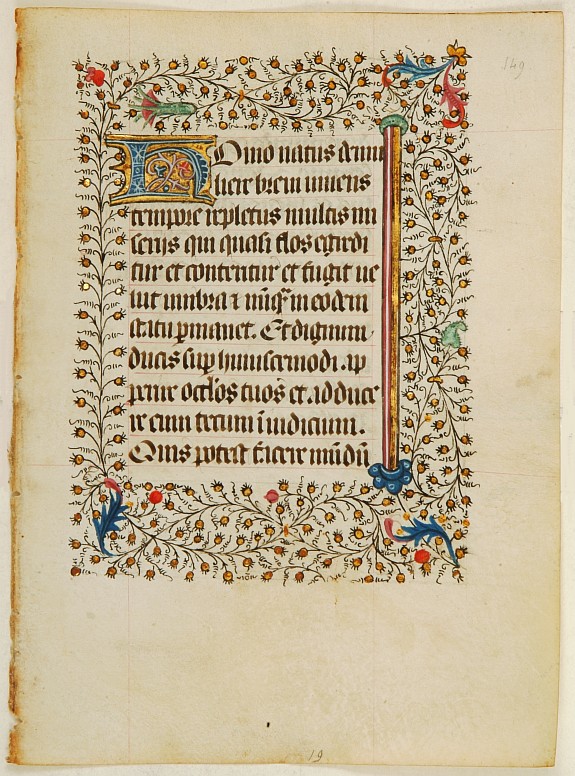 149
Homo natus de mu
liere breui uiuens
tempore repletus multis mi
serijs qui quasi flos egredi
tur et conteritur et fugit ue
lut umbra ⁊ nūqᷓ in eodem
statu ꝑmanet. Et dignum
ducis sup huiuscemodi. ap
perire oc̄los tuos et. adduce
re eum tecum ī iudicium.
Quis potest facere mūdū
19